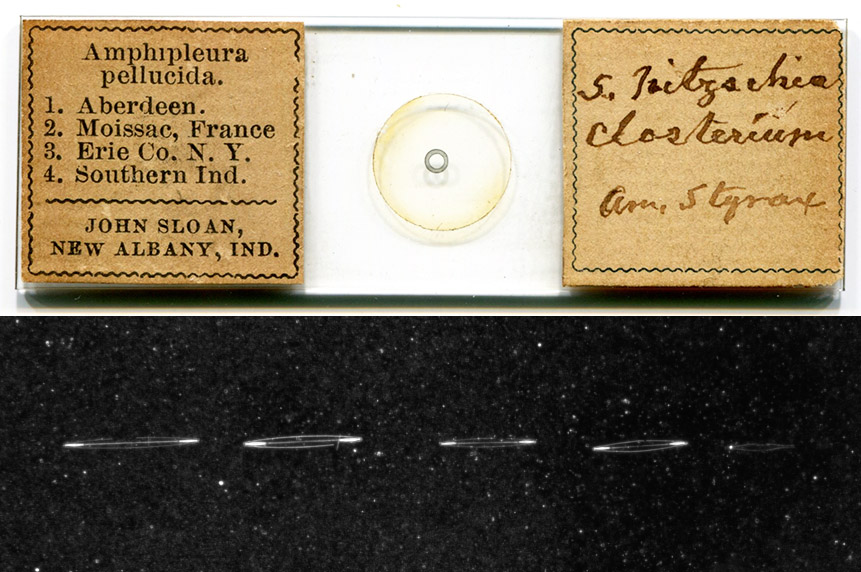 Amphipleura
pellucida.
1. Aberdeen.
2. Moissac, France
3. Erie Co. N. Y.
4. Southern Ind.
JOHN SLOAN,
NEW ALBANY, IND.
5. Nitzschia
Closterium
Am. Styrax